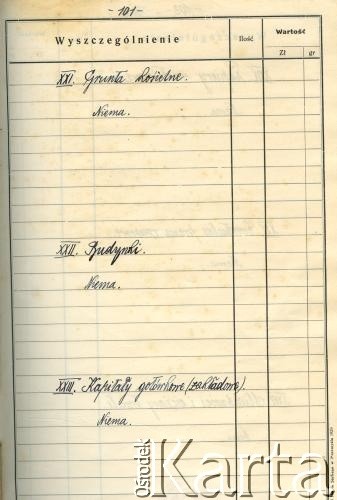 -101-
Wyszczególnienie
Ilość
Wartość
Zł
gr
XXI. Grunta kościelne.
Niema.
XXII. Budynki.
Niema.
XXIII. Kapitały gotówkowe (zakładowe).
Niema.
ośrodek
Karta